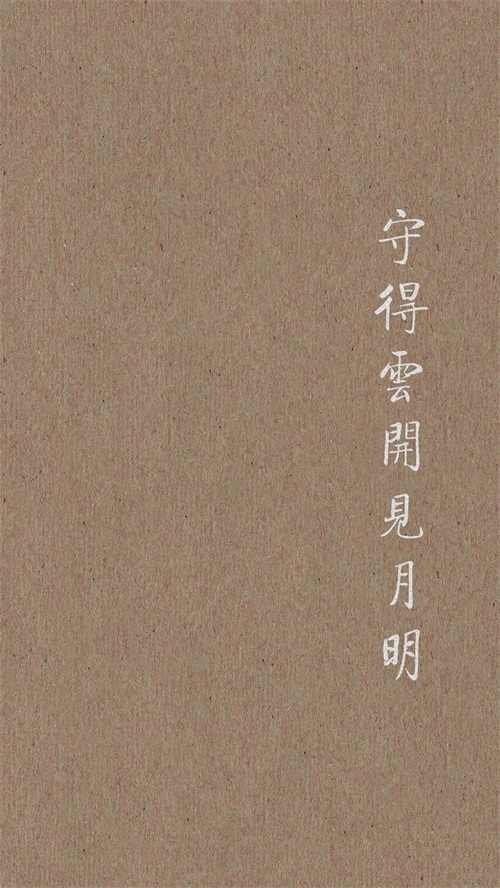 守得雲開見月明